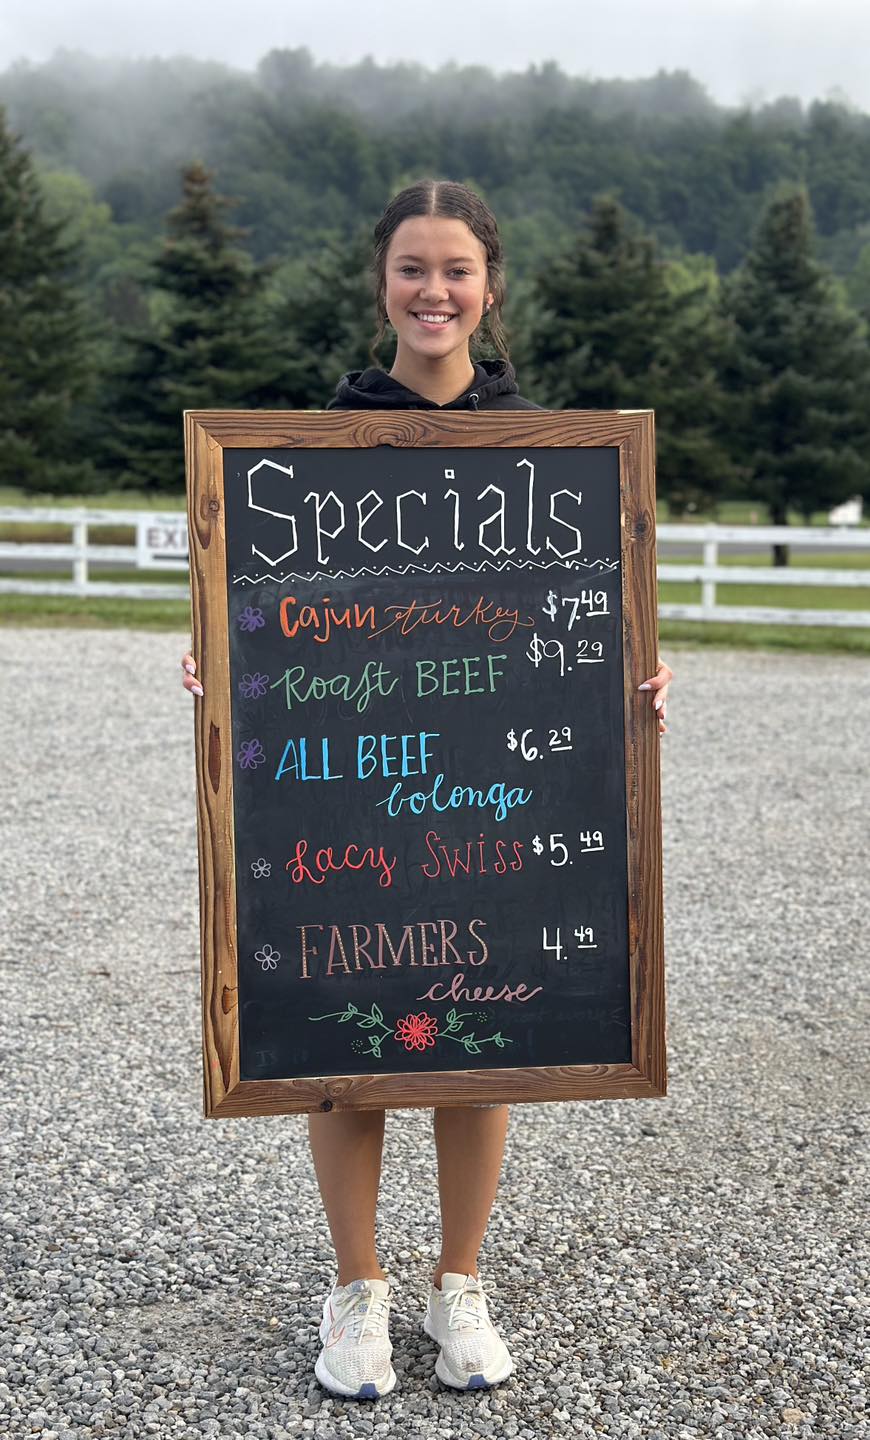 Specials
EXI
Cajun turkey $7.49
Roast BEEF $9.29
ALL BEEF $6.29
bolonga
Lacy Swiss $5.49
FARMERS 4.49
cheese